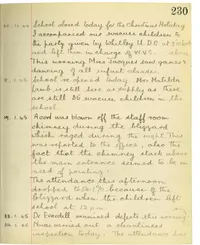 230
20.12.44 School closed today for the Christmas Holiday
I accompanied our evacuee children to
the party given by Whitley U.D.C at 3 o'clock
and left him in charge of W.V.S.
This morning Miss Jacques saw games &
dancing of all infant classes.
8.1.45 School re-opened today. Mrs Matilda
Lamb is still here as supply as there
are still 86 evacuee children in the
school.
19.1.45 A cowl was blown off the staff room
chimney during the blizzard
which raged during the night. This
was reported to the office, also the
fact that the chimney stack above
the main entrance seemed to be in
need of pointing.
The attendance this afternoon
dropped to because of the
blizzard when the children left
school at 12 p.m.
22.1.45 Dr examined defects this morning
Nurse carried out a cleanliness
inspection today. The attendance has